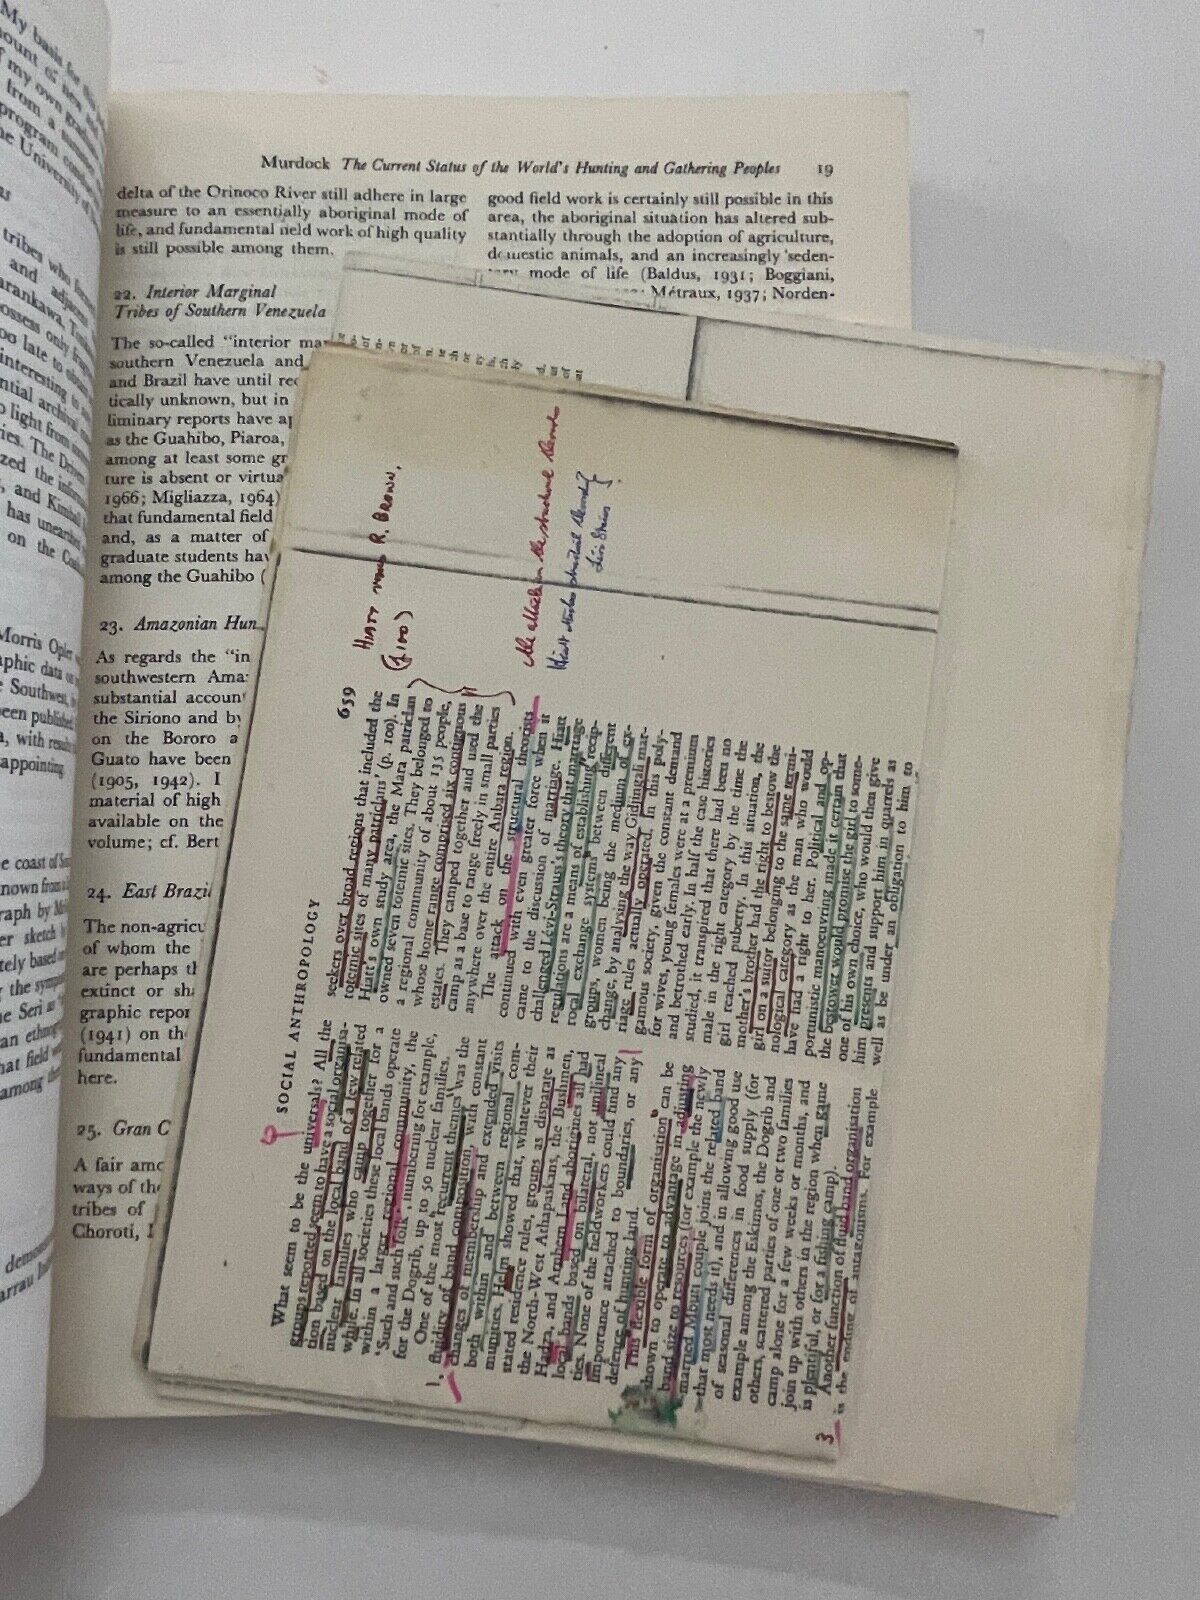 My basis for
from a
program
the University of
tribes who
and adjacent
too late to
interesting to
light from
has unearthed
on the
Morris Opler
graphic data on
Southwest,
been published,
a, with results
appointing
e coast of
nown from a
raph by
er sketch
tely based on
the Seri as
an ethno
hat field
among the
Murdock The Current Status of the World's Hunting and Gathering Peoples 19
delta of the Orinoco River still adhere in large
measure to an essentially aboriginal mode of
life, and fundamental field work of high quality
is still possible among them.
22. Interior Marginal
Tribes of Southern Venezuela
The so-called "interior mar
southern Venezuela and
and Brazil have until rec
tically unknown, but in
liminary reports have ap
as the Guahibo, Piaroa,
among at least some gr
ture is absent or virtua
1966; Migliazza, 1964)
that fundamental field
and, as a matter of
graduate students hav
among the Guahibo (
23. Amazonian Hun
As regards the "in
southwestern Ama
substantial accoun
the Siriono and by
on the Bororo a
Guato have been
(1905, 1942). I
material of high
available on the
volume; cf. Bert
24. East Brazil
The non-agricu
of whom the
are perhaps th
extinct or sha
graphic repor
(1941) on the
fundamental
here.
25. Gran C
A fair amo
ways of the
tribes of
Choroti,
good field work is certainly still possible in this
area, the aboriginal situation has altered sub-
stantially through the adoption of agriculture,
domestic animals, and an increasingly seden-
tary mode of life (Baldus, 1931; Boggiani,
Métraux, 1937; Norden-
SOCIAL ANTHROPOLOGY 659
What seem to be the universals? All the
groups reported seem to have a social organisa-
tion based on the local band of a few related
nuclear families who camp together for a
while. In all societies these local bands operate
within a larger regional community, the
'Such and such folk', numbering for example,
for the Dogrib, up to 50 nuclear families.
One of the most recurrent themes was the
1. fluidity of band composition, with constant
changes of membership and extended visits
both within and between regional com-
munities. Helm showed that, whatever their
stated residence rules, groups as disparate as
the North-West Athapaskans, the Bushmen,
Hadza, and Arnhem Land aborigines all had
local bands based on bilateral, not unilineal
ties. None of the fieldworkers could find any
importance attached to boundaries, or any
defence of hunting land.
This flexible form of organisation can be
shown to operate to advantage in adjusting
band size to resources (for example the newly
married Mbuti couple joins the related band
that most needs it), and in allowing good use
of seasonal differences in food supply (for
example among the Eskimos, the Dogrib and
others, scattered parties of one or two families
camp alone for a few weeks or months, and
join up with others in the region when game
is plentiful, or for a fishing camp).
3 Another function of fluid band organisation
is the ending of antagonisms. For example
seekers over broad regions that included the
totemic sites of many patriclans' (p. 100). In
Hiatt's own study area, the Mara patriclan
owned seven totemic sites. They belonged to
a regional community of about 135 people,
whose home range comprised six contiguous
estates. They camped together and used the
camp as a base to range freely in small parties
anywhere over the entire Anbara region.
The attack on the structural theorists
continued with even greater force when it
came to the discussion of marriage. Hiatt
challenged Lévi-Strauss's theory that marriage
regulations are a means of establishing recip-
rocal exchange systems between different
groups, women being the medium of ex-
change, by analysing the way Gidjingali mar-
riage rules actually operated. In this poly-
gamous society, given the constant demand
for wives, young females were at a premium
and betrothed early. In half the case histories
studied, it transpired that there had been no
male in the right category by the time the
girl reached puberty. In this situation, the
mother's brother had the right to bestow the
girl on a suitor belonging to the same termi-
nological category as the man who would
have had a right to her. Political and op-
portunistic manoeuvring made it certain that
the bestower would promise the girl to some-
one of his own choice, who would then give
him presents and support him in quarrels as
well as be under an obligation to him to
HIATT versus R. BROWN.
(p. 100)
The attack on the structural theorists
Hiatt
Lévi Strauss